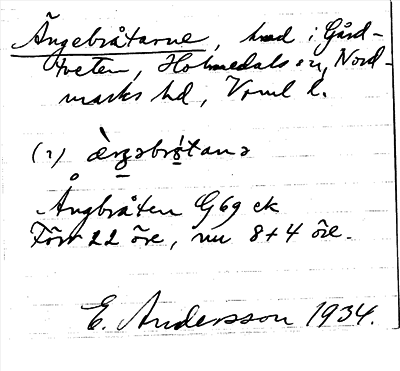 Ängebråtarne, hmd i Gård-
tveten, Holmedals sn, Nord-
marks hd, Vrml l.
(1) æ̀rgəbrǫ́tanə
Ångbråten G69 ek
Förr 22 öre, nu 8+4 öre.
E. Andersson 1934.